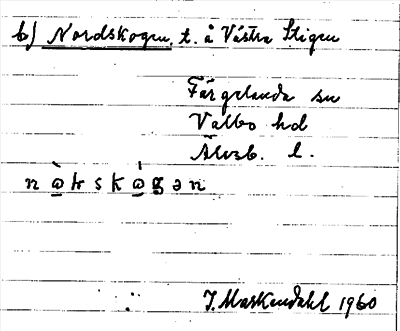 b) Nordskogen, t. å Västra Stigen
Färgelanda sn
Valbo hd
Älvsb. l.
n ὼ̲ ʈ s k ὼ̲ g ə n
J. Markendahl 1960